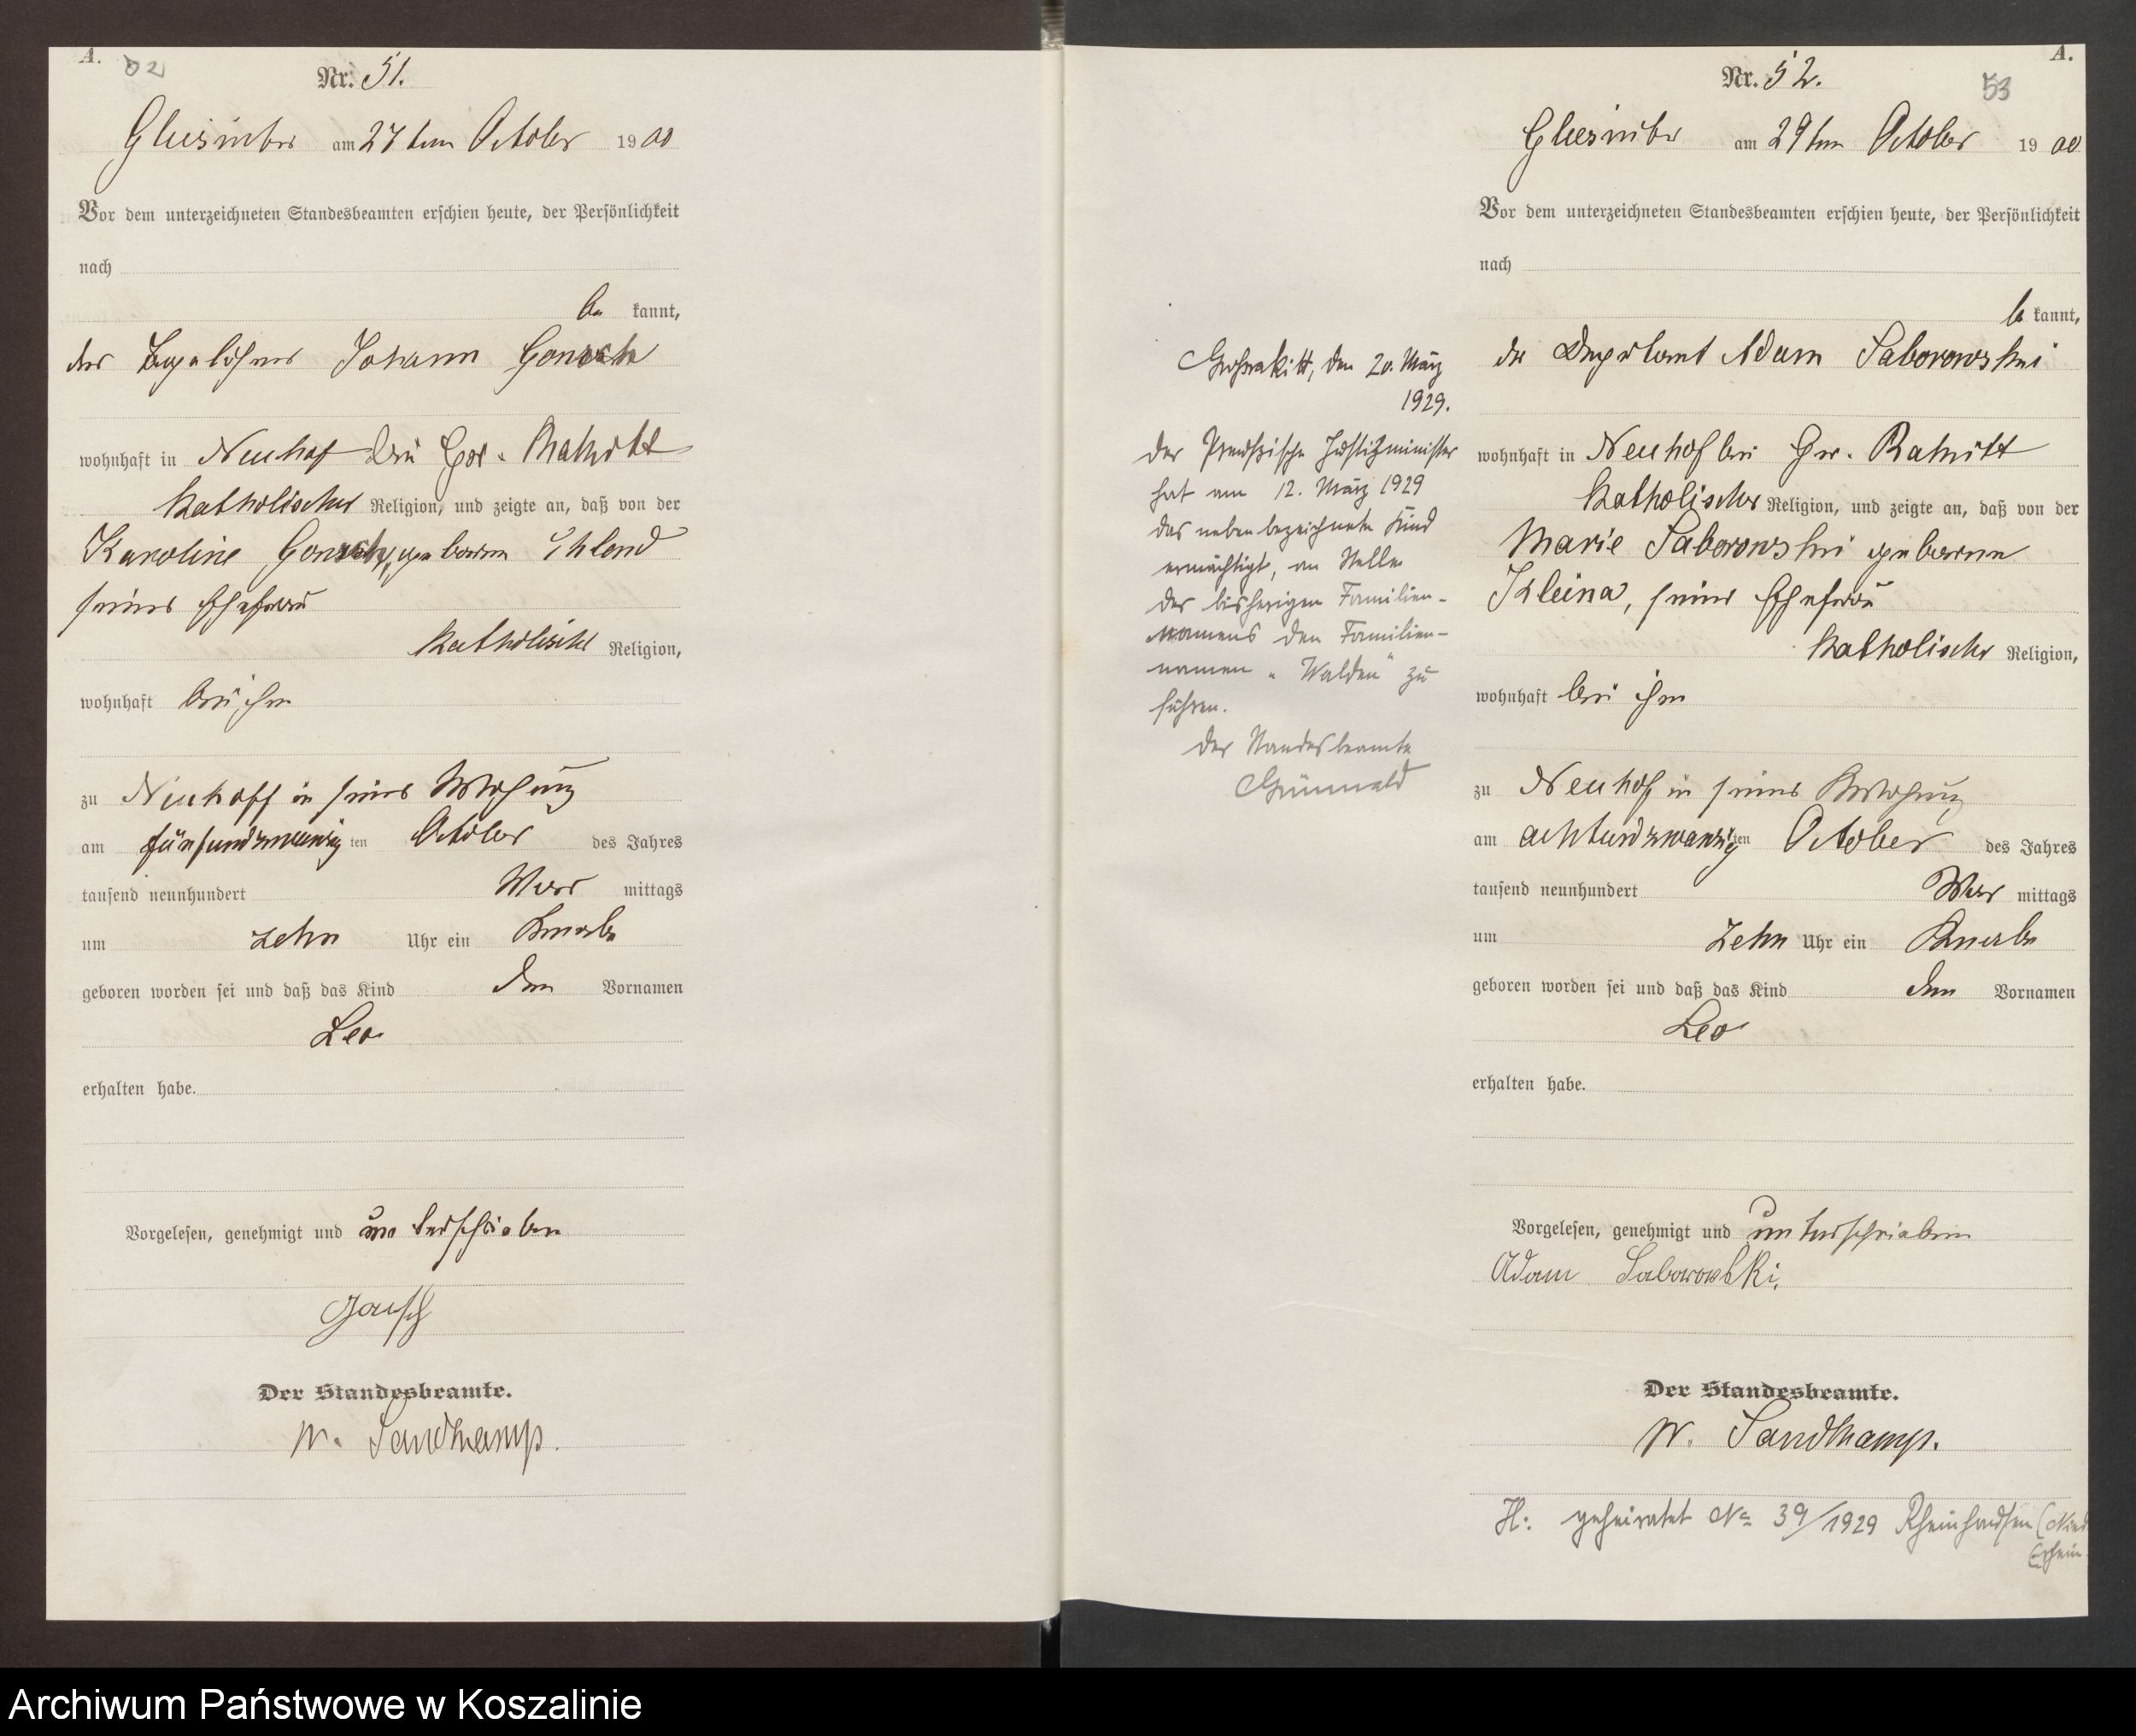 A.
52
Nr. 51.
Gliesnitz am 27 ten October 1900
Vor dem unterzeichneten Standesbeamten erschien heute, der Persönlichkeit
nach
be kannt,
der Tagelöhner Johann
wohnhaft in Neuhof bei Gr. Rakitt
katholischer Religion, und zeigte an, daß von der
Karoline geborene
seiner Ehefrau
katholischer Religion,
wohnhaft bei ihm
zu Neuhoff in seiner Wohnung
am fünfundzwanzig ten October des Jahres
tausend neunhundert Vor mittags
um zehn Uhr ein Knabe
geboren worden sei und daß das Kind den Vornamen
Leo
erhalten habe.
Vorgelesen, genehmigt und unterschrieben
Der Standesbeamte.
W. Sandkamp.
A.
53
Nr. 52.
Gliesnitz am 29 ten October 1900
Vor dem unterzeichneten Standesbeamten erschien heute, der Persönlichkeit
nach
be kannt,
der Deputant Adam Saborowski
wohnhaft in Neuhof bei Gr. Rakitt
katholischer Religion, und zeigte an, daß von der
Marie Saborowski geborene
Kleina, seiner Ehefrau
katholischer Religion,
wohnhaft bei ihm
zu Neuhof in seiner Wohnung
am achtundzwanzig ten October des Jahres
tausend neunhundert Vor mittags
um zehn Uhr ein Knabe
geboren worden sei und daß das Kind den Vornamen
Leo
erhalten habe.
Vorgelesen, genehmigt und unterschrieben
Adam Saborowski.
Der Standesbeamte.
W. Sandkamp.
Großrakitt, den 20. März
1929.
Der Preußische Justizminister
hat am 12. März 1929
das nebenbezeichnete Kind
ermächtigt, an Stelle
des bisherigen Familien-
namens den Familien-
namen „Walden“ zu
führen.
Der Standesbeamte
Grünwald
H: geheiratet No 39/1929 Rheinhausen (Nied
Archiwum Państwowe w Koszalinie